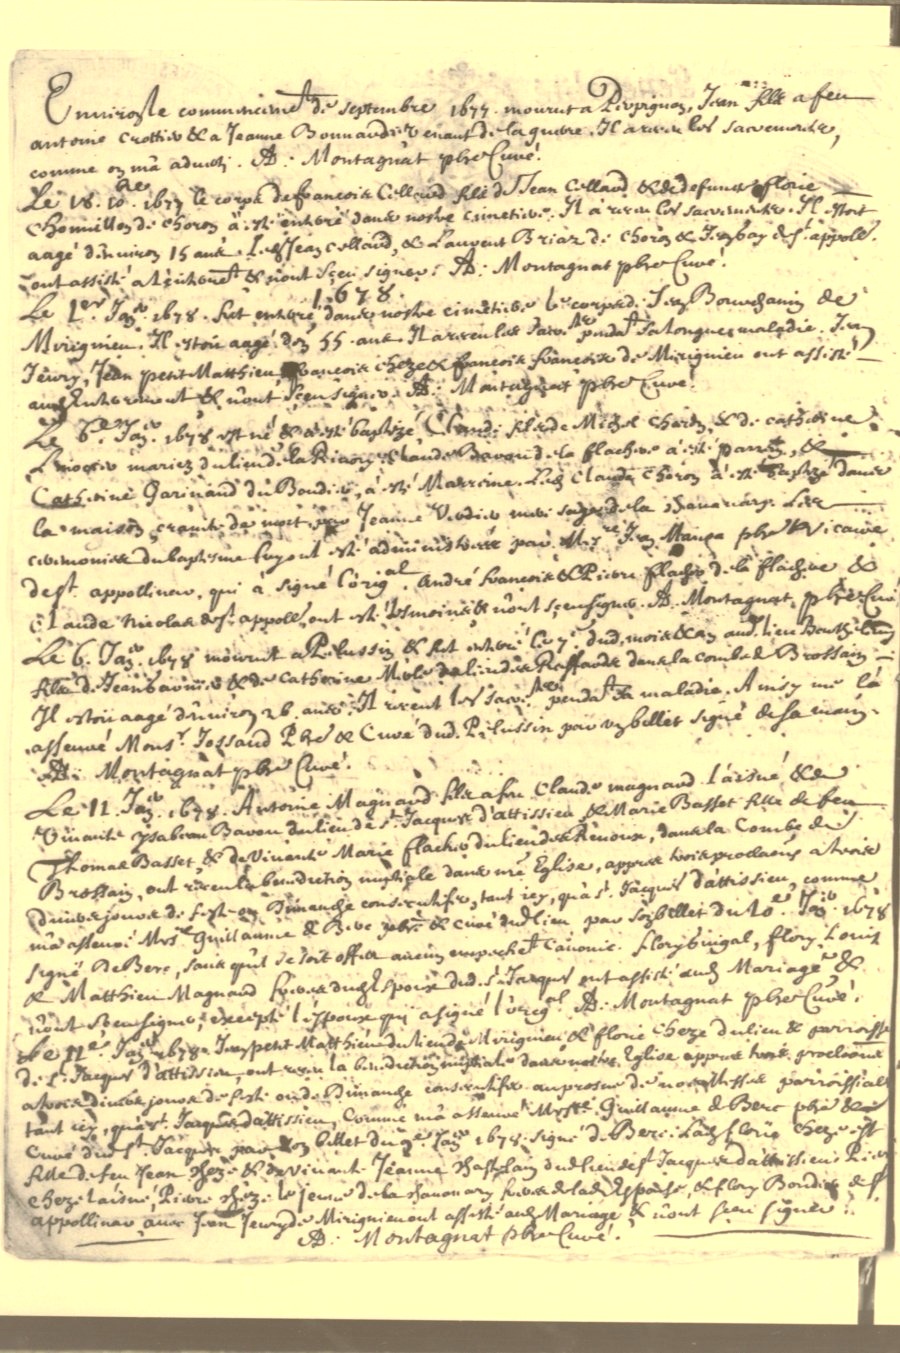 Environ le commencemt de septembre 1677 mourut a Perpignan, Jean fils a feu
antoine Crottier & a Jeanne Bonnaud venant de la guerre. Il a receu les sacrements,
comme on m'a adverti. A: Montagnat pbre Curé.
Le 18. 10bre 1677 le corps de françois Cellard fils de Jean Cellard & de defuncte florie
Chomillon de Choron à esté enterré dans nostre cimetiere. Il à receu les sacrements. Il estoit
aagé d'environ 15 ans. Led Jean Cellard, & Laurent Briaz de Choron & de St. appoll.
ont assisté a l'enterrt & n'ont sceu signer. A: Montagnat pbre Curé.
1678.
Le 1er Janv. 1678 fut enterré dans nostre cimetiere le corps de Bonchanin de
Mirignieu. Il estoit aagé d'en 55 ans. Il a receu les sacrts pendt sa longue maladie.
Jeury, Jean petit Matthieu françois Cheze & françois françois de Mirignieu ont assisté
aud Enterrement & n'ont sceu signer. A: Montagnat pbre Curé.
Le 6e Janv. 1678 est né & a esté baptizé Claude fils de Michel Choron, & de catherine
mariez du lieu de la Claude Bavou de la flachere à esté parrin, &
Catherine Garinaud du Boudier, à esté Marraine. Led Claude Choron à esté baptizé dans
la maison crainte de mort, par Jeanne Verdier mere sage de la Les
ceremonies du baptisme luy ont esté administrées par Mre Jean pbre & Vicaire
de St. appollinar, qui à signé l'origal. André françois & Pierre flacher de la flachere &
Claude Nicolas de St. appoll. ont esté tesmoins & n'ont sceu signer. A: Montagnat, pbre Curé
Le 6. Janv. 1678 mourut a Pelussin & fut enterré le 7e dud. mois & an aud. lieu
fils de Jean & de Catherine Merle du lieu de dans la combe de Brossain
Il estoit aagé d'environ 26 ans. Il receut les sacrts pendt sa maladie. Ainsy me l'à
asseuré Monsr. Jossaud Pbre & Curé dud. Pelussin par un billet signé de sa main.
A: Montagnat pbre Curé.
Le 11 Janv. 1678. Antoine Magnard fils a feu Claude magnard l'aisné & de
vivante ysabeau Bavou du lieu de St. Jacques d'attissieu & Marie Basset fille de feu
Thomas Basset, & de vivante Marie flacher du lieu de dans la Combe de
Brossain, ont receu la benediction nuptiale dans nre Eglise, apprés trois proclaons a trois
divers jours de feste ou Dimanche consecutifs, tant icy, qu'a St. Jacques d'attissieu, comme
m'a asseuré Mre Guillaume de Berc pbre & curé dud lieu par son billet du 10e Janv. 1678
signé De Berc, sans qu'il se soit offert aucun empeschet Canonic. flory Guigal, flory Louis
& Matthieu Magnard frere dud Espoux dud. St. Jacques ont assisté aud Mariage &
n'ont sceu signer, excepté l'espoux qui a signé l'origal. A: Montagnat pbre Curé.
Le 11e Janv. 1678 Jean petit Matthieu du lieu de Mirignieu & florie Cheze du lieu & parroisse
de St. Jacques d'attissieu, ont receu la benediction nuptiale dans nostre Eglise apprés trois proclaons
a trois divers jours de feste ou de Dimanche consecutifs au prosne de nos Messes parroissiales
tant icy, qu'a St. Jacques d'attissieu, Comme m'a asseuré Mre Guillaume de Berc pbre &
Curé dud St. Jacques par son billet du 9e Janv 1678. signé De Berc. Lad florie Cheze est
fille de feu Jean Cheze & de vivante Jeanne Chastelain dud lieu de St Jacques d'attissieu. Pierre
Cheze l'aisné, Pierre Cheze le jeune de la frere de lad Espouse, & flory Boudier de St.
appollinar avec Jean Jeury de Mirignieu ont assisté aud Mariage & n'ont sceu signer.
A: Montagnat pbre Curé.